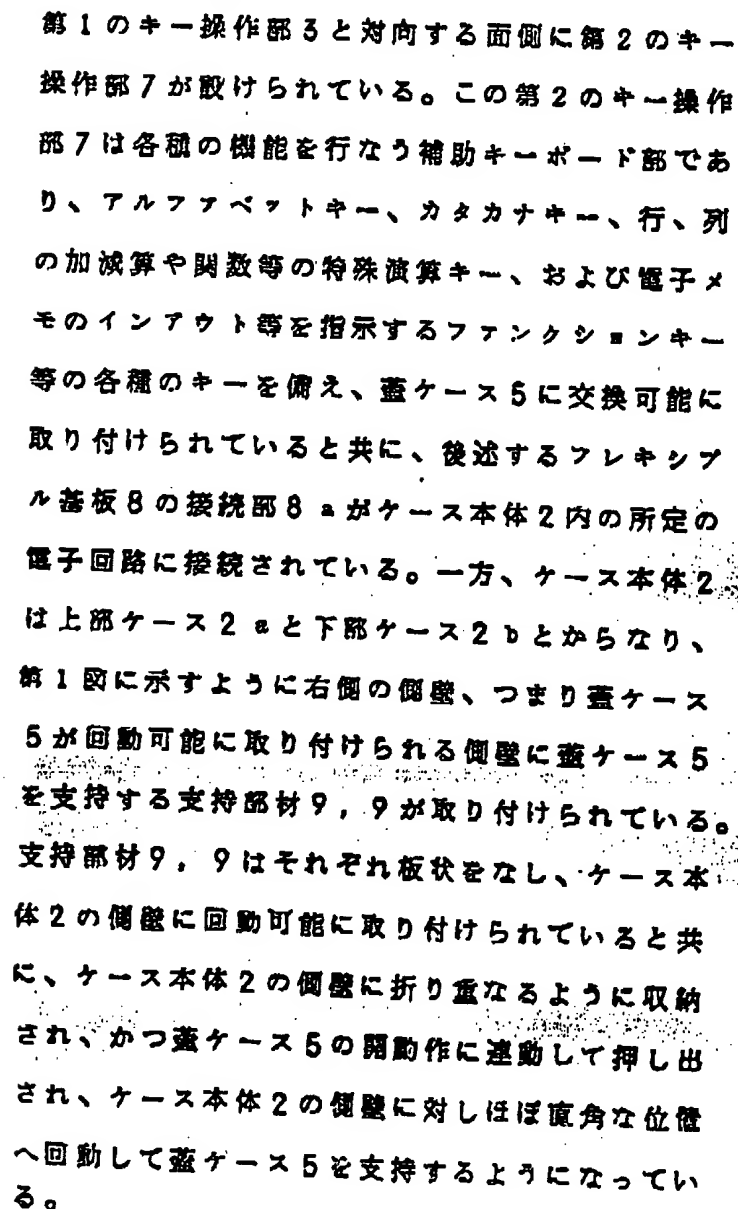 第1のキー操作部3と対向する面側に第2のキー
操作部7が設けられている。この第2のキー操作
部7は各種の機能を行なう補助キーボード部であ
り、アルファベットキー、カタカナキー、行、列
の加減算や関数等の特殊演算キー、および電子メ
モのインアウト等を指示するファンクションキー
等の各種のキーを備え、蓋ケース5に交換可能に
取り付けられていると共に、後述するフレキシブ
ル基板8の接続部8aがケース本体2内の所定の
電子回路に接続されている。一方、ケース本体2
は上部ケース2aと下部ケース2bとからなり、
第1図に示すように右側の側壁、つまり蓋ケース
5が回動可能に取り付けられる側壁に蓋ケース5
を支持する支持部材9,9が取り付けられている。
支持部材9,9はそれぞれ板状をなし、ケース本
体2の側壁に回動可能に取り付けられていると共
に、ケース本体2の側壁に折り重なるように収納
され、かつ蓋ケース5の開動作に連動して押し出
され、ケース本体2の側壁に対しほぼ直角な位置
へ回動して蓋ケース5を支持するようになってい
る。